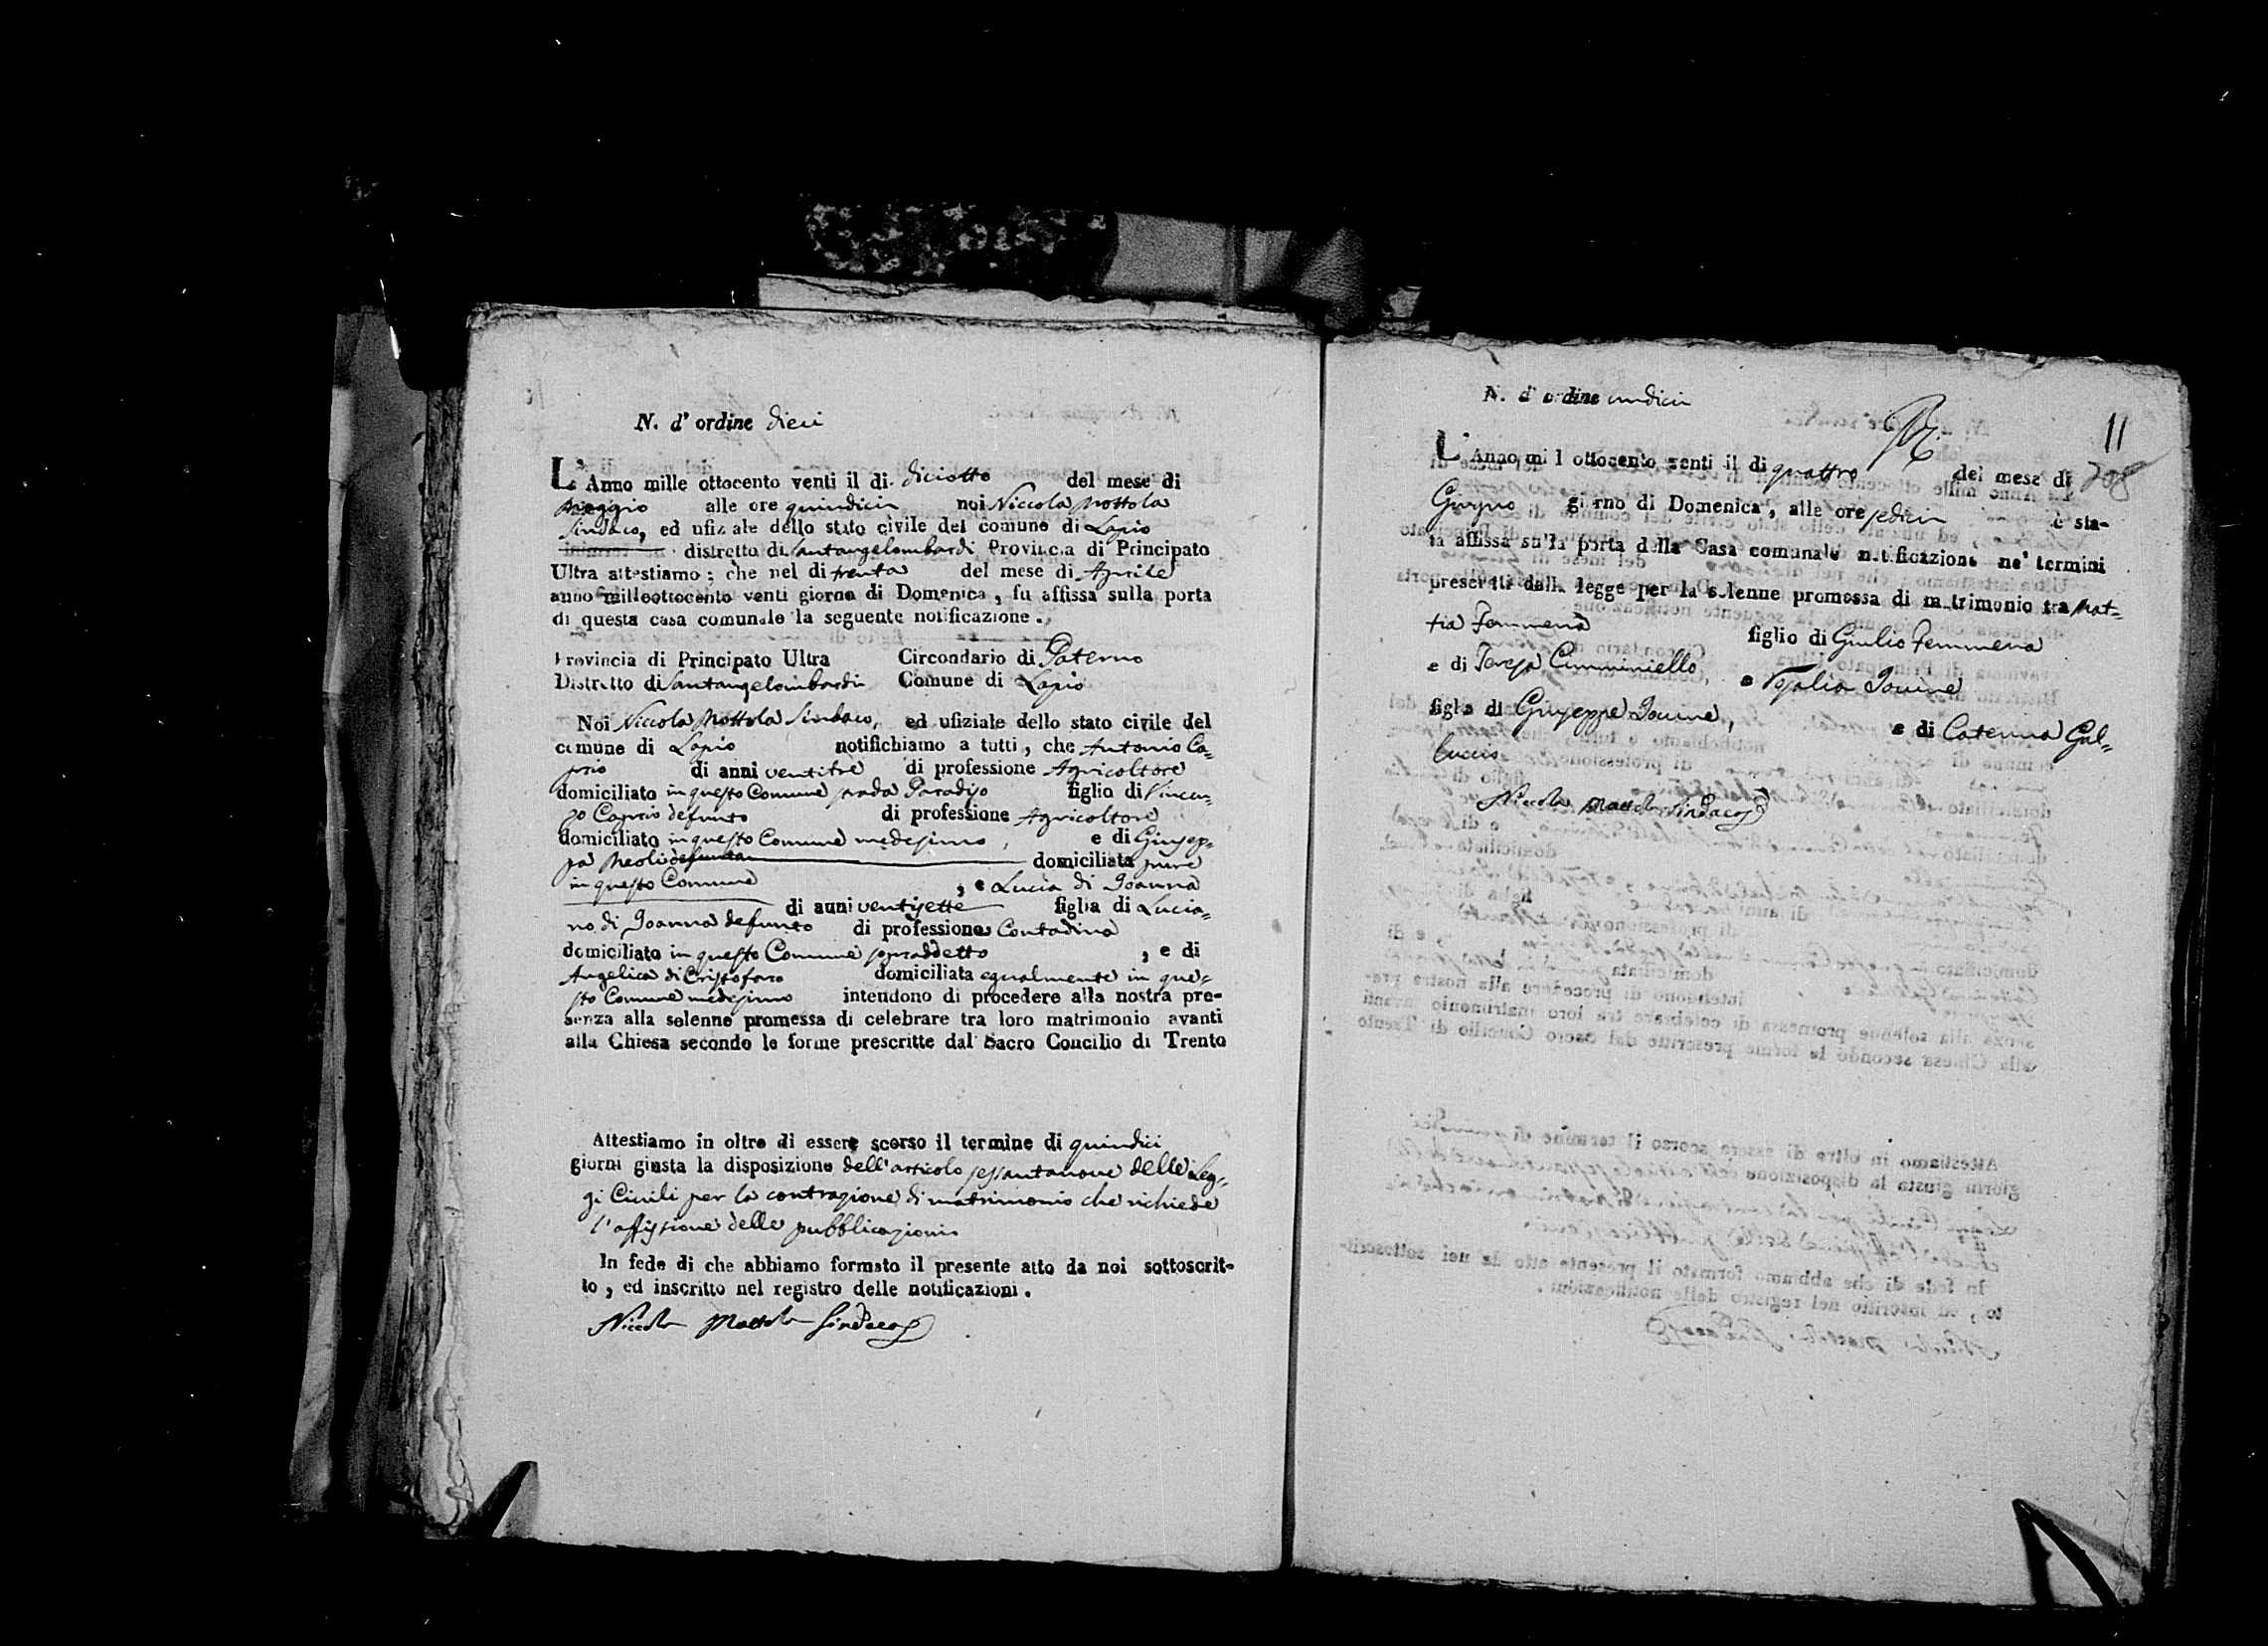 N. d' ordine dieci
L' Anno mille ottocento venti il di diciotto del mese di
Maggio alle ore quindici noi Niccola Mottola
Sindaco, ed ufiziale dello stato civile del comune di Lapio
distretto di Santangelombardi Provincia di Principato
Ultra attestiamo; che nel di trenta del mese di Aprile
anno milleottocento venti giorno di Domenica, fu affissa sulla porta
di questa casa comunale la seguente notificazione.
Provincia di Principato Ultra Circondario di Paterno
Distretto di Santangelombardi Comune di Lapio
Noi Niccola Mottola Sindaco, ed ufiziale dello stato civile del
comune di Lapio notifichiamo a tutti, che Antonio Ca-
prio di anni ventitre di professione Agricoltore
domiciliato in questo Comune strada Paradiso figlio di Vincen-
zo Caprio defunto di professione Agricoltore
domiciliato in questo Comune medesimo, e di Giusep-
pa Meoli defunta domiciliata pure
in questo Comune, e Lucia di Joanna
di anni ventisette figlia di Lucia-
no di Joanna defunto di professione Contadina
domiciliato in questo Comune sopraddetto, e di
Angelica di Cristofaro domiciliata egualmente in que-
sto Comune medesimo intendono di procedere alla nostra pre-
senza alla solenne promessa di celebrare tra loro matrimonio avanti
alla Chiesa secondo le forme prescritte dal Sacro Concilio di Trento
Attestiamo in oltre di essere scorso il termine di quindici
giorni giusta la disposizione dell'articolo sessantanove delle Leg-
gi Civili per la contrazione di matrimonio che richiede
l'affissione delle pubblicazioni
In fede di che abbiamo formato il presente atto da noi sottoscrit-
to, ed inscritto nel registro delle notificazioni.
Niccola Mottola Sindaco
N. d' ordine undici
11
L' Anno mill ottocento venti il di quattro del mese di
208
Giugno giorno di Domenica, alle ore sedici è sta-
ta affissa sulla porta della Casa comunale notificazione ne' termini
prescritti dalla legge per la solenne promessa di matrimonio tra Mat-
tia Femmena figlio di Giulio Femmena
e di Teresa Cimminiello, e Rosalia Jovine
figlia di Giuseppe Jovine, e di Caterina Gal-
luccio
Niccola Mottola Sindaco